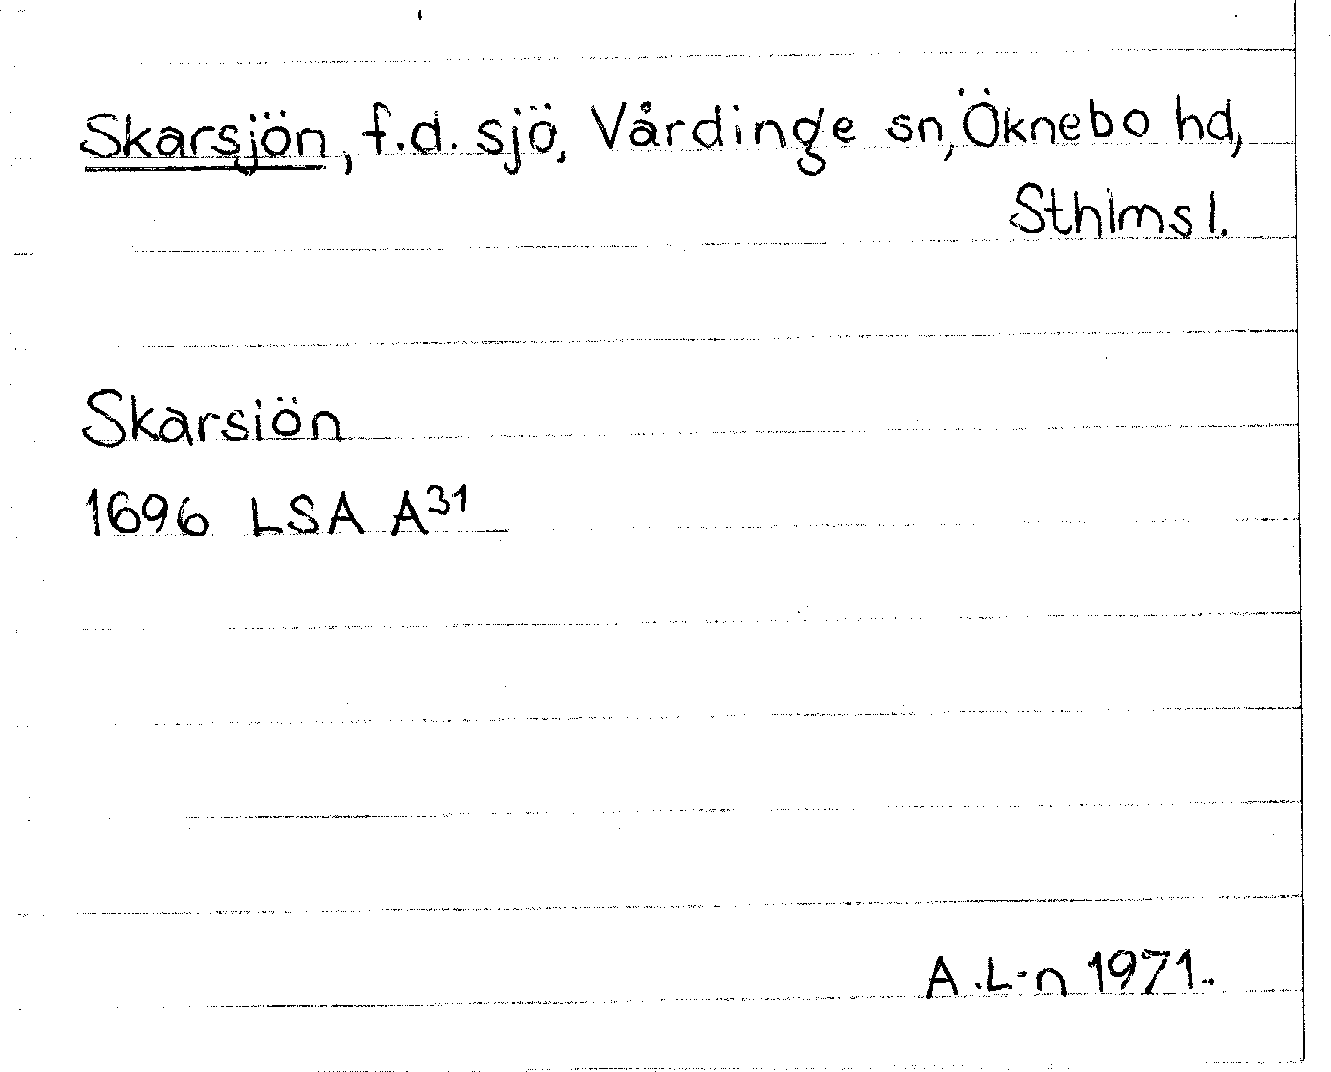 Skarsjön, f.d. sjö, Vårdinge sn, Öknebo hd,
Sthlms l.
Skarsiön
1696 LSA A31
A.L-n 1971.